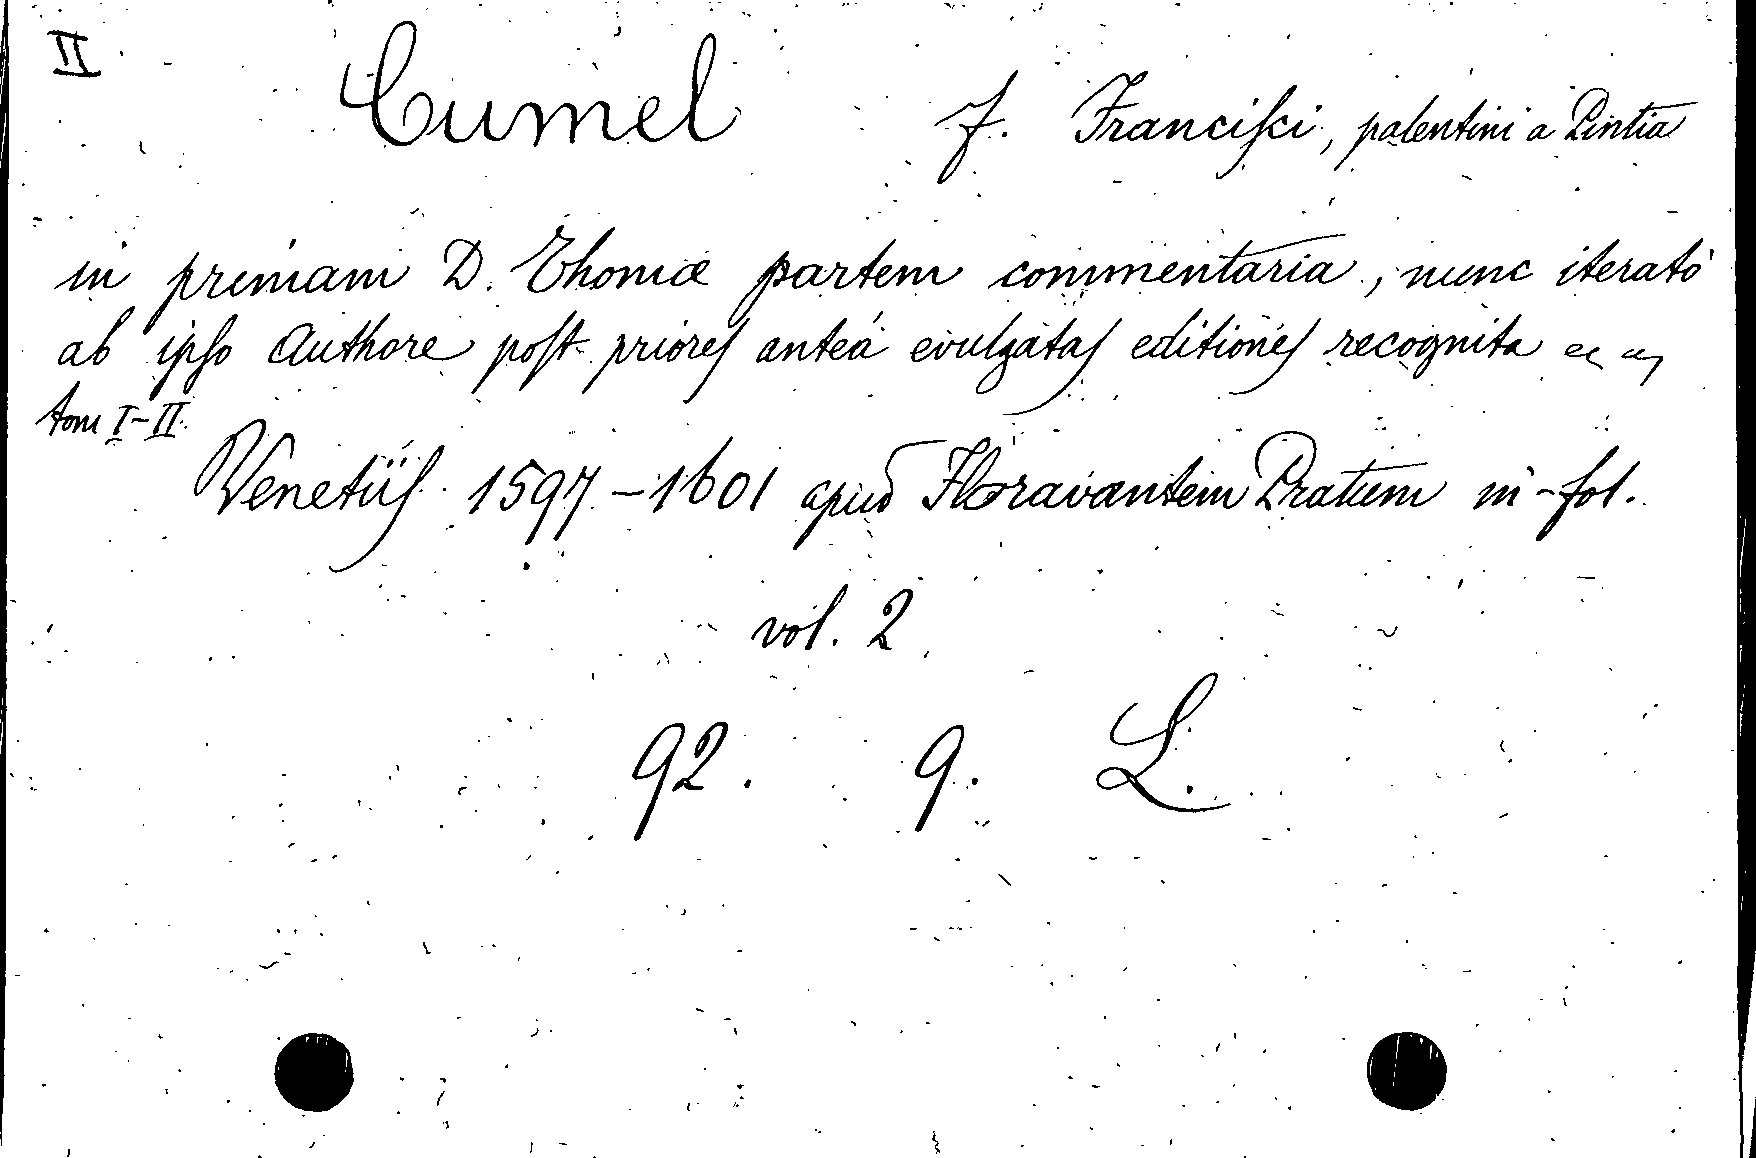 II Cumel F. Franciſci, palentini a Pintia
in primam D. Thomæ partem commentaria, nunc iterato
ab ipſo Authore poſt prioreſ anteà evulgataſ editioneſ recognita
tom I-II.
Venetiiſ 1597-1601 apud Floravantem Pratum in-fol.
vol. 2
92. 9. L.